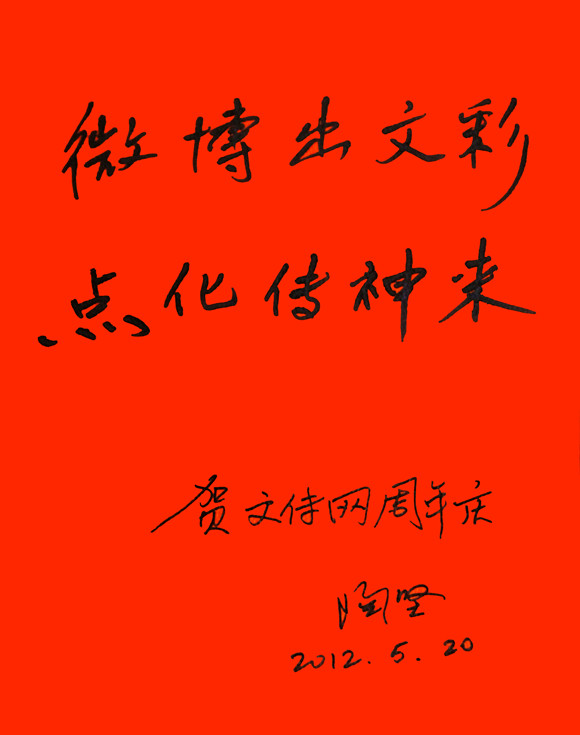 微博出文彩
点化传神来
贺文传网周年庆
陶坚
2012.5.20